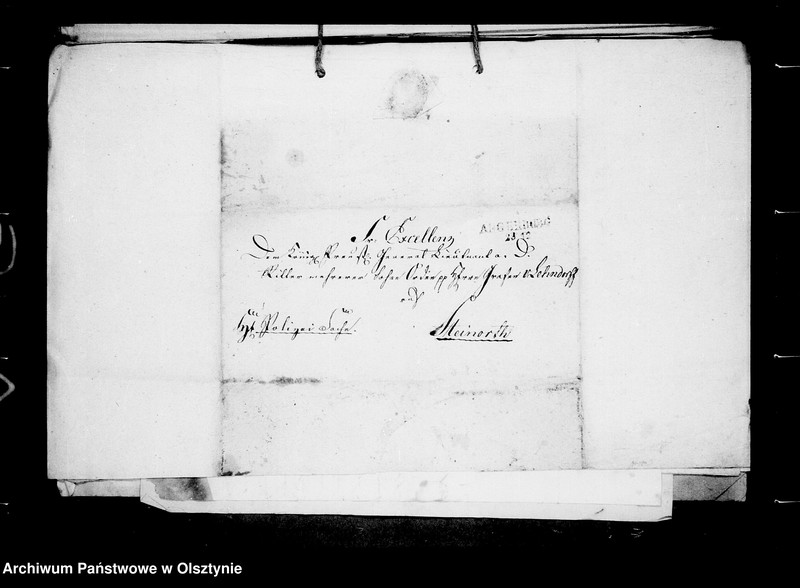 Sr. Excellenz
ANGERBURG
Dem Königl. Preuß. General Lieutenant a. D.
Ritter mehrerer hohen Orden pp Herrn Grafen v. Lehndorff
auf
Polizei Sache.
Steinorth
Archiwum Państwowe w Olsztynie